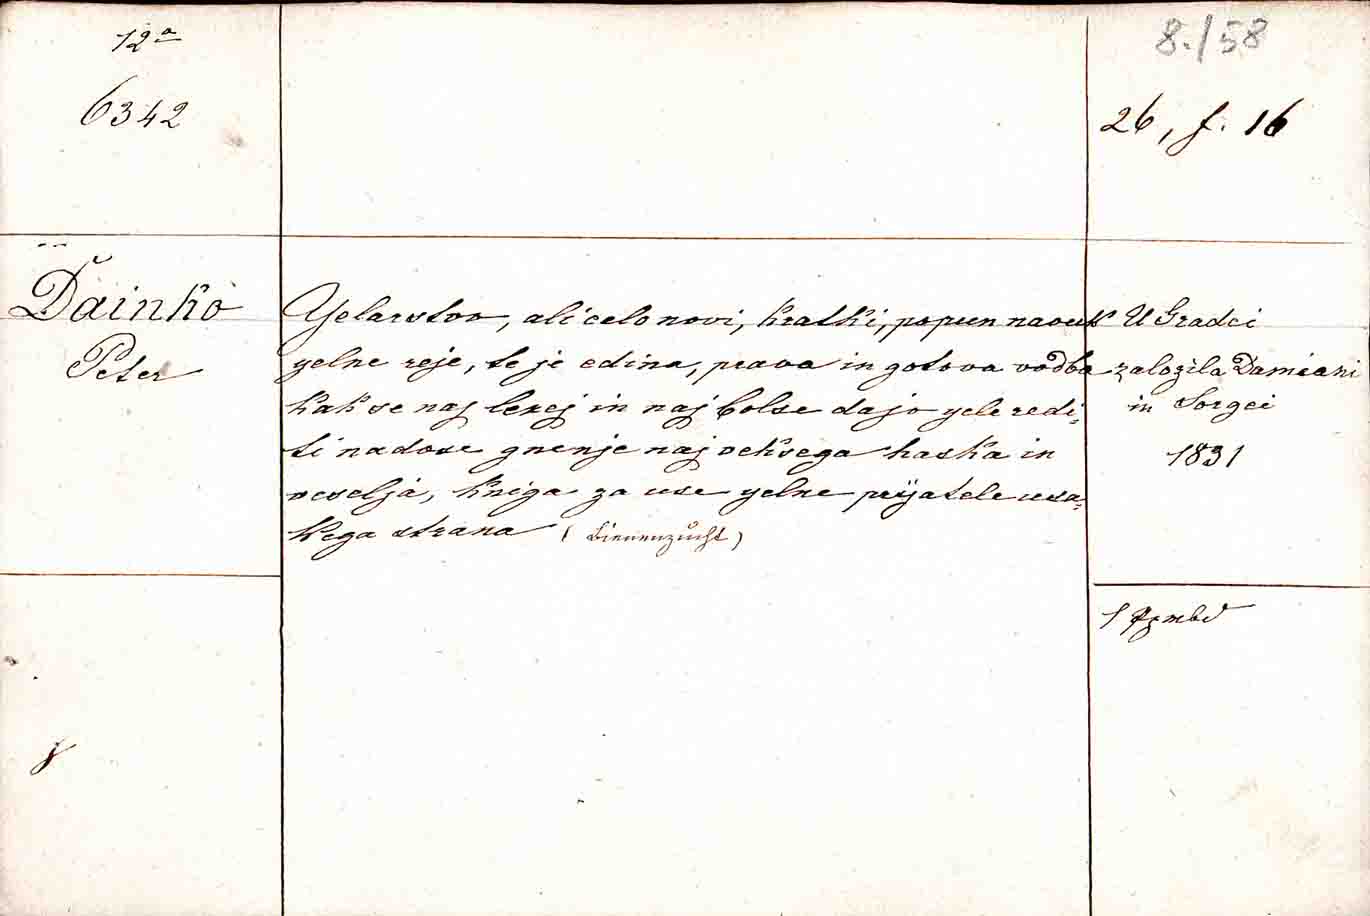 12°
6342
8./58
26, f. 16
Dainko
Peter
Yelarstvo, ali celo novi, kratki, popun navuk
yelne reje, te je edina, prava in gotova vodba
kak se naj lexej in naj bolse dajo yele redi-
ti na dose gnenje naj veksega haska in
veselja, kniga za use yelne prijatele usa-
kega strana (Bienenzucht)
U Gradci
založila Damiani
in Sorgei
1831
1